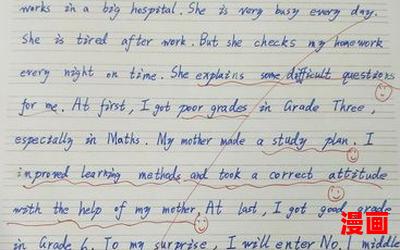 works in a big hospital. She is very busy every day.
She is tired after work. But she checks my homework
every night on time. She explains some difficult questions
for me. At first, I got poor grades in Grade Three,
especially in Maths. My mother made a study plan. I
inproved learning methods and took a correct attitude
with the help of my mother. At last, I got good grade
in Grade 6. To my surprise, I will enter No. 1 middle
漫画